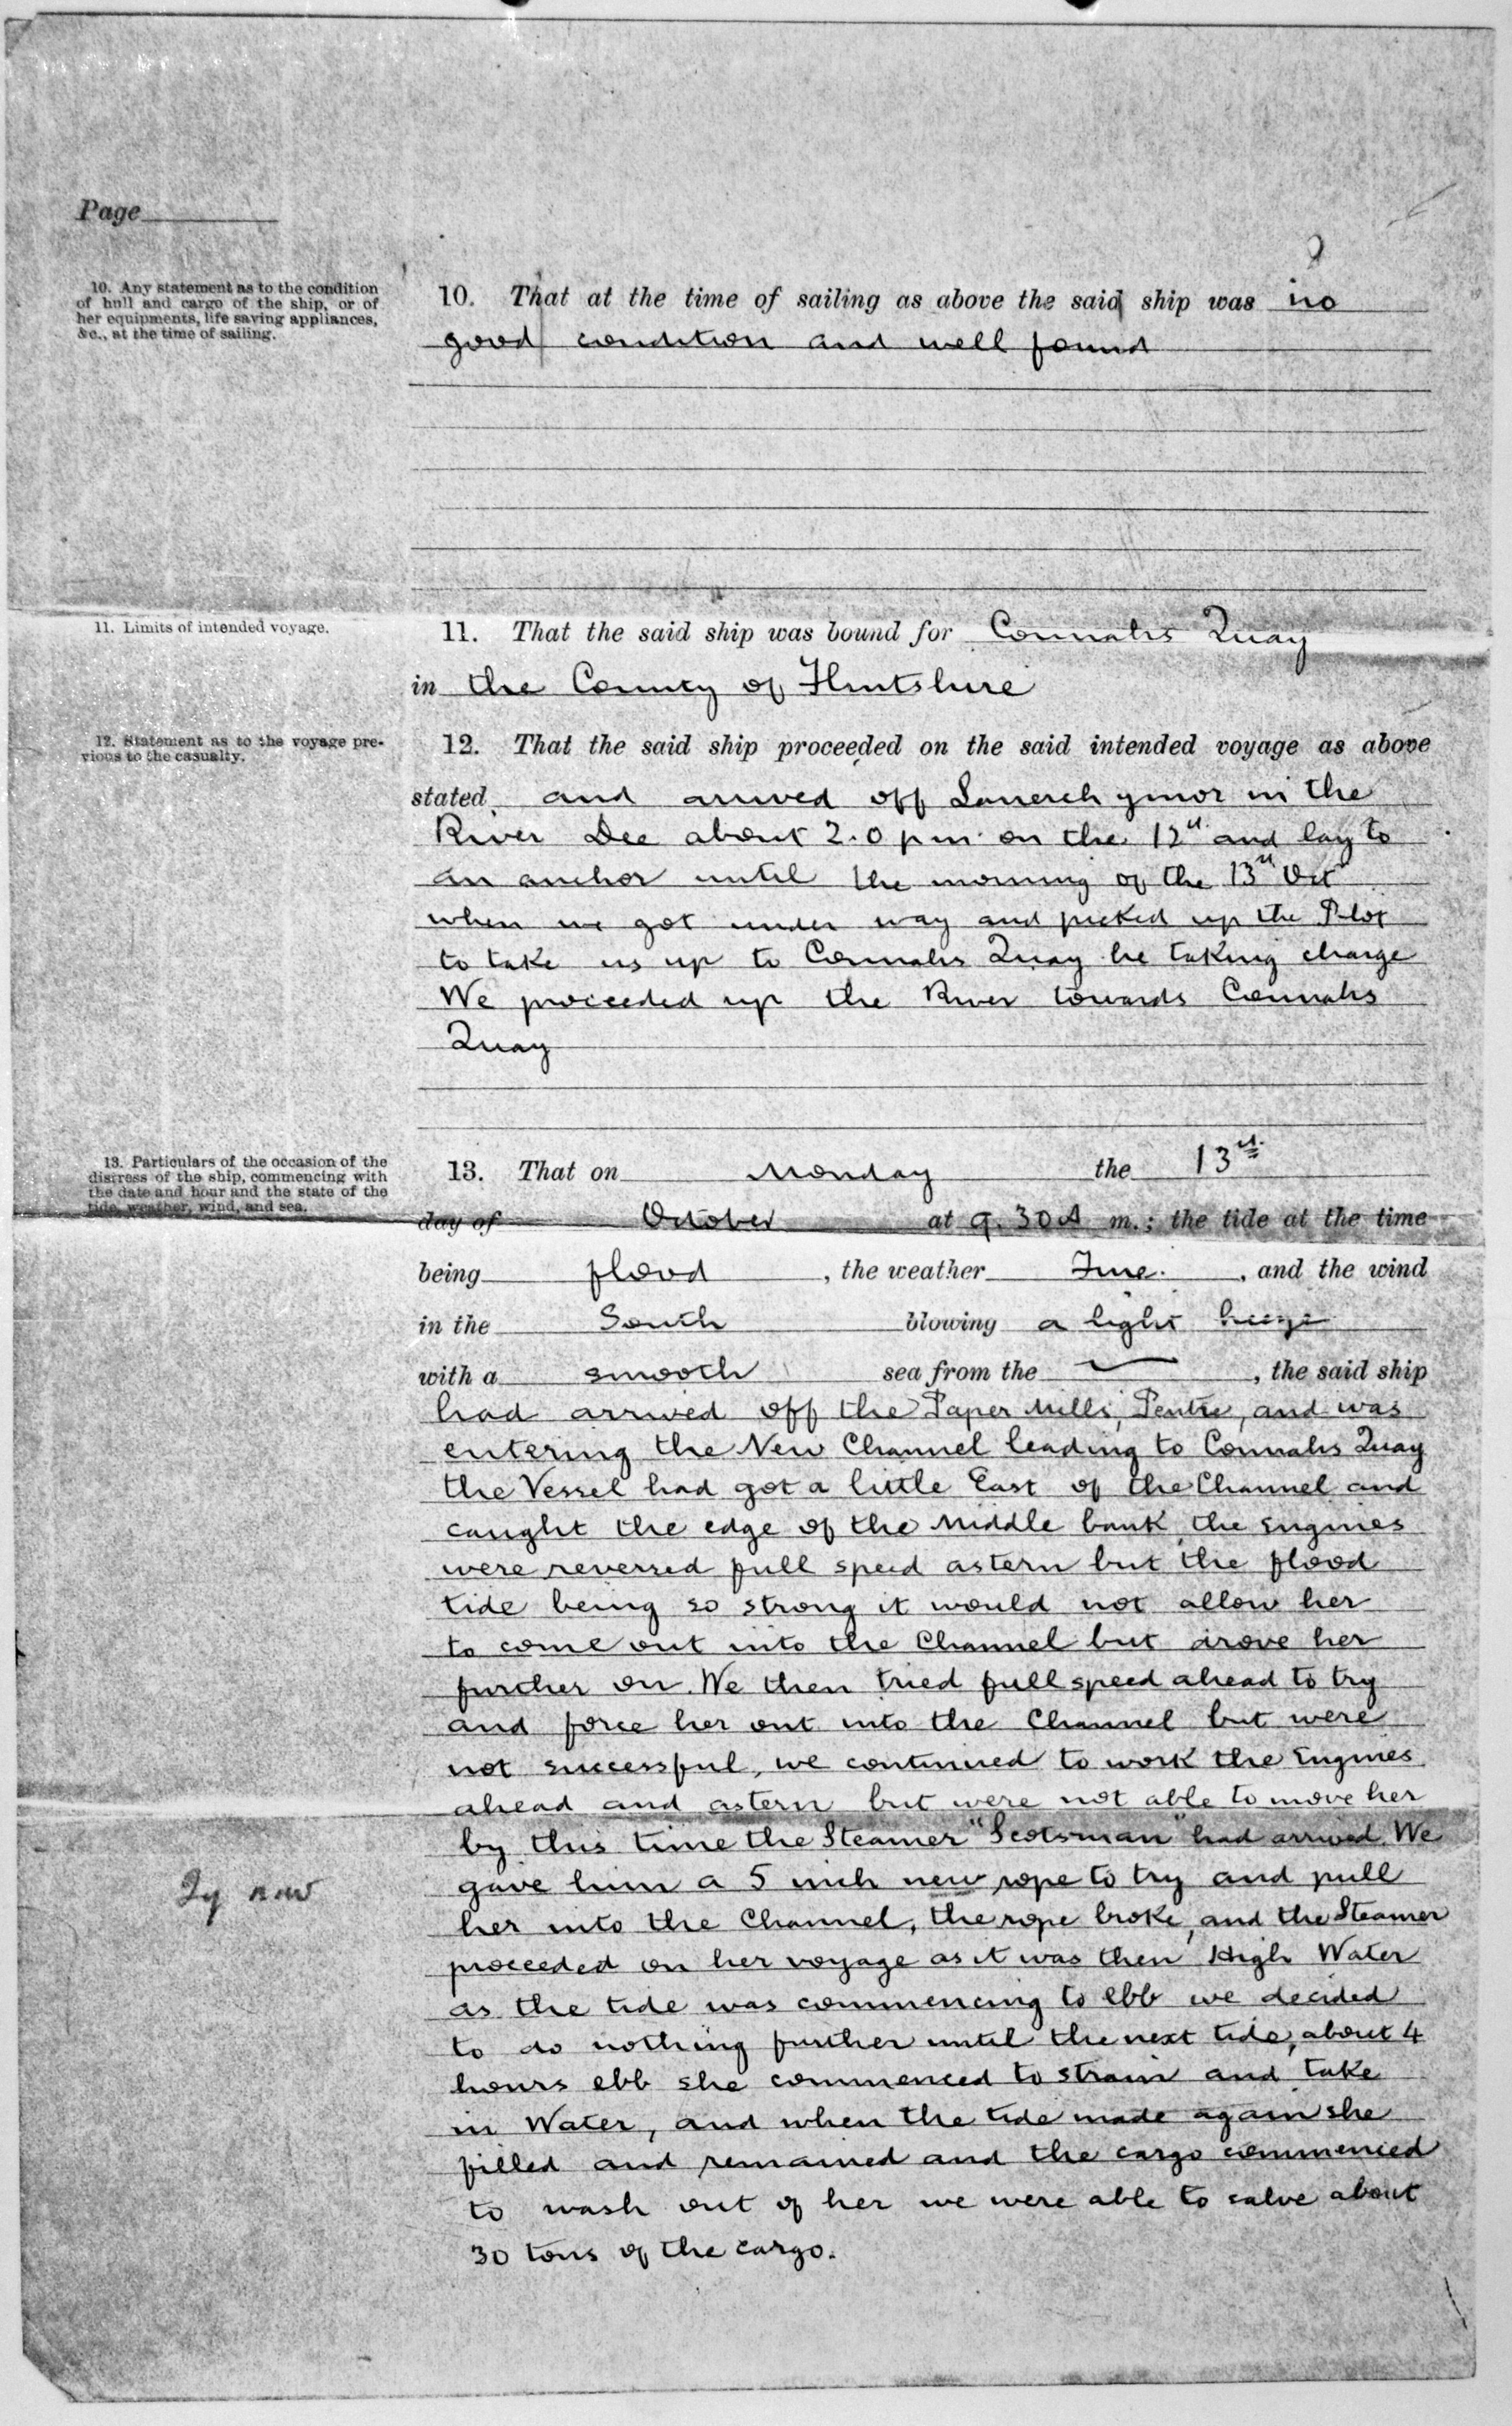 Page
10. Any statement as to the condition
of hull and cargo of the ship, or of
her equipments, life saving appliances,
&c., at the time of sailing.
10. That at the time of sailing as above the said ship was in
good condition and well found
11. Limits of intended voyage.
11. That the said ship was bound for Connahs Quay
in the County of Flintshire
12. Statement as to the voyage pre-
vious to the casualty.
12. That the said ship proceeded on the said intended voyage as above
stated and arrived off Lanerchymor in the
River Dee about 2.0 pm on the 12th and lay to
an anchor until the morning of the 13th Oct
when we got under way and picked up the Pilot
to take us up to Connahs Quay he taking charge
We proceeded up the River towards Connahs
Quay
13. Particulars of the occasion of the
distress of the ship, commencing with
the date and hour and the state of the
tide, weather, wind, and sea.
13. That on Monday the 13th
day of October at 9.30 A m.; the tide at the time
being flood, the weather Fine, and the wind
in the South blowing a light breeze
with a smooth sea from the —, the said ship
had arrived off the Paper Mills, Pentre, and was
entering the New Channel leading to Connahs Quay
the Vessel had got a little East of the Channel and
caught the edge of the Middle bank the Engines
were reversed full speed astern but the flood
tide being so strong it would not allow her
to come out into the Channel but drove her
further on. We then tried full speed ahead to try
and force her out into the Channel but were
not successful, we continued to work the Engines
ahead and astern but were not able to move her
by this time the Steamer "Scotsman" had arrived. We
gave him a 5 inch new rope to try and pull
her into the Channel, the rope broke, and the Steamer
proceeded on her voyage as it was then High Water
as the tide was commencing to ebb we decided
to do nothing further until the next tide, about 4
hours ebb she commenced to strain and take
in Water, and when the tide made again she
filled and remained and the cargo commenced
to wash out of her we were able to salve about
30 tons of the cargo.